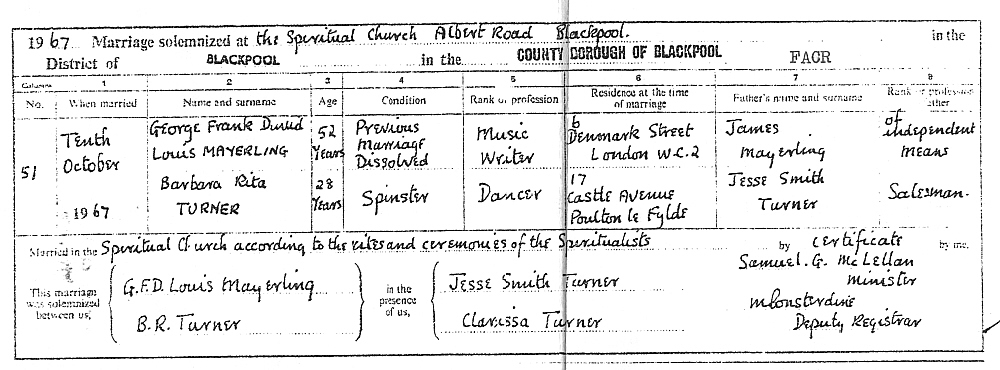 1967 Marriage solemnized at the Spiritual Church Albert Road Blackpool. in the
District of BLACKPOOL in the COUNTY BOROUGH OF BLACKPOOL FACR
Columns 1 2 3 4 5 6 7 8
No. When married Name and surname Age Condition Rank or profession Residence at the time of marriage Father's name and surname Rank or profession of father
51 Tenth October 1967 George Frank David Louis MAYERLING 52 Years Previous Marriage Dissolved Music Writer 6 Denmark Street London W.C.2 James Mayerling of independent means
Barbara Rita TURNER 28 Years Spinster Dancer 17 Castle Avenue Poulton le Fylde Jesse Smith Turner Salesman.
Married in the Spiritual Church according to the rites and ceremonies of the Spiritualists by certificate by me,
This marriage was solemnized between us, G.F.D. Louis Mayerling B.R. Turner in the presence of us, Jesse Smith Turner Clarissa Turner
Samuel. G. McLellan
Minister
Deputy Registrar